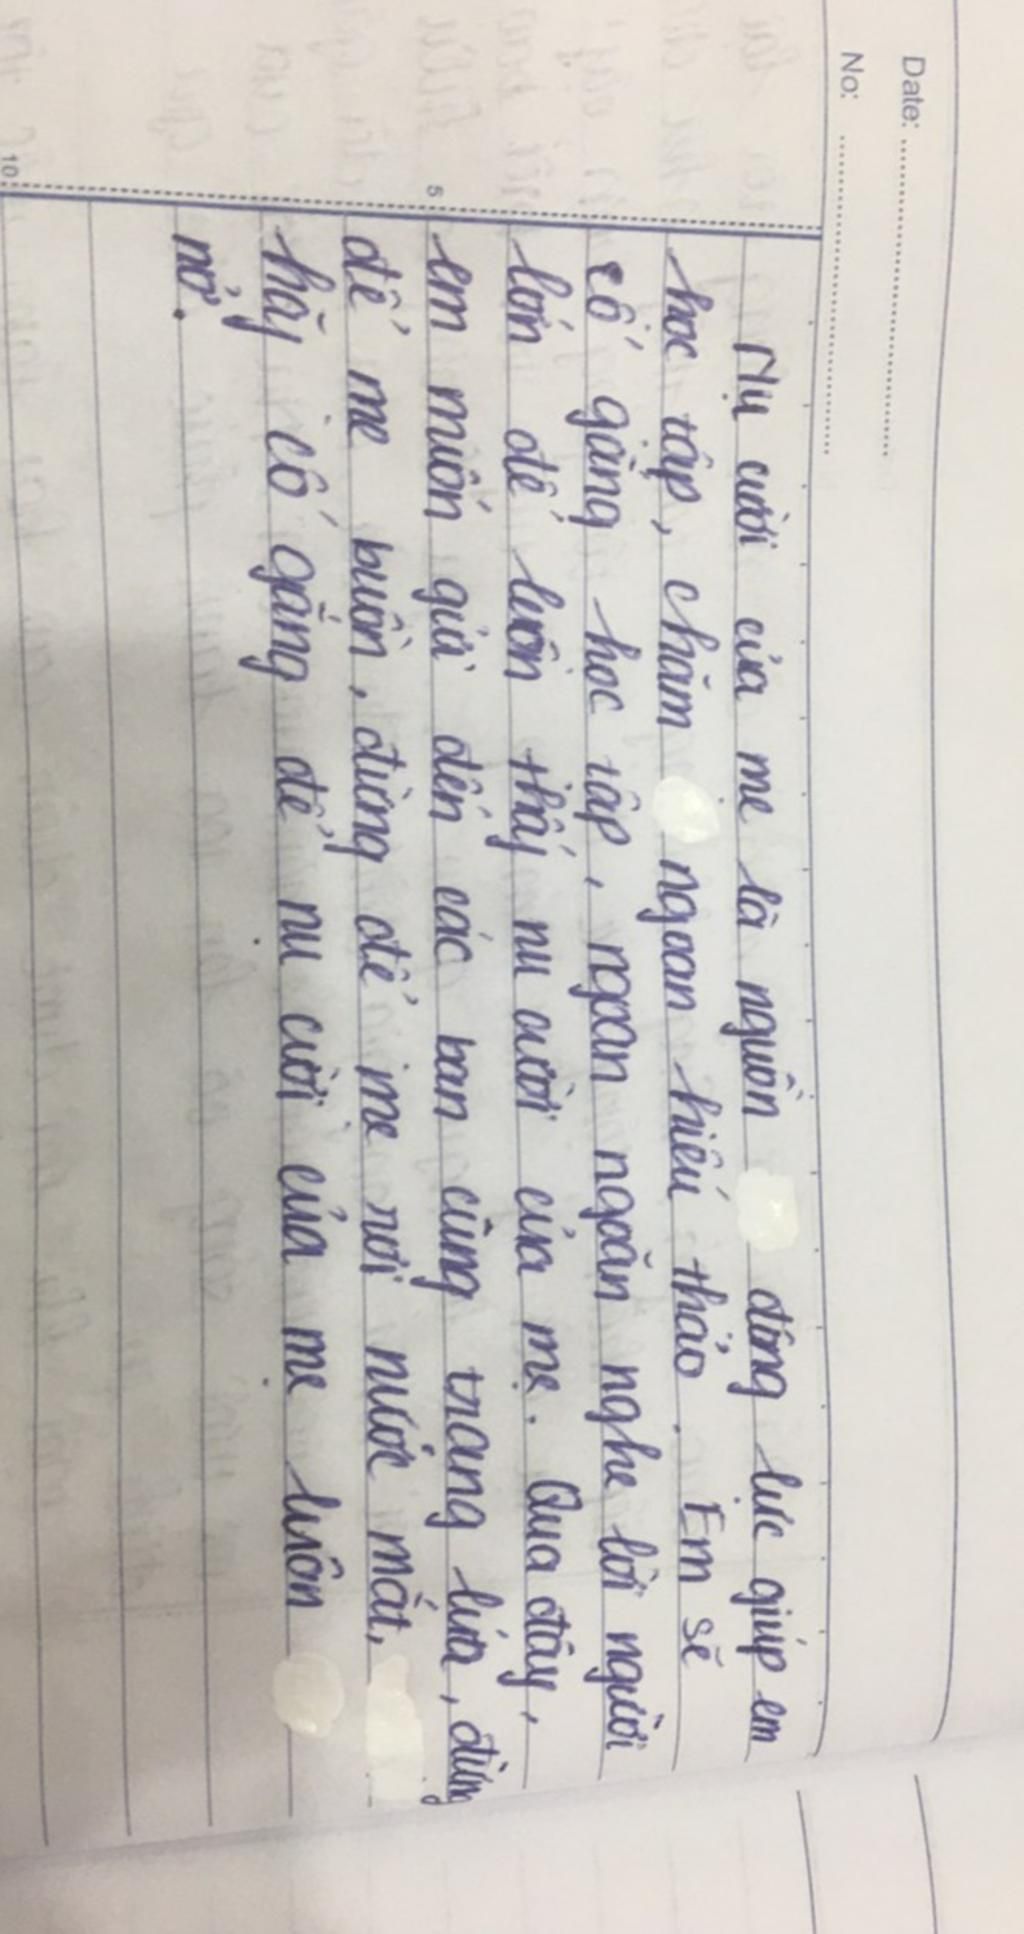 Date:
No:
Nụ cười của mẹ là nguồn động lực giúp em
học tập, chăm ngoan hiếu thảo. Em sẽ
cố gắng học tập, ngoan ngoãn nghe lời người
lớn để luôn thấy nụ cười của mẹ. Qua đây,
5
em muốn gửi đến các bạn cùng trang lứa, đừng
để mẹ buồn, đừng để mẹ rơi nước mắt,
hãy cố gắng để nụ cười của mẹ luôn
nở.
10